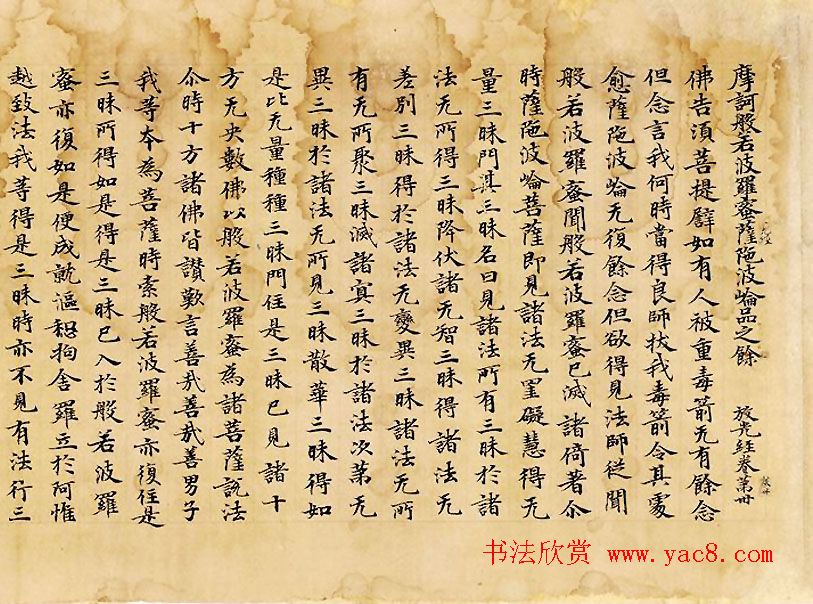 摩訶般若波羅蜜薩陁波崘品之餘 放光經卷第卅
佛告湏菩提譬如有人被重毒箭无有餘念
但念言我何時當得良師扙我毒箭令其瘡
愈薩陁波崘无復餘念但欲得見法師從聞
般若波羅蜜聞般若波羅蜜已滅諸倚著尒
時薩陁波崘菩薩即見諸法无罣礙慧得无
量三昧門其三昧名曰見諸法所有三昧於諸
法无所得三昧降伏諸无智三昧得諸法无
差別三昧得於諸法无變異三昧諸法无所
有无所聚三昧滅諸寘三昧於諸法次第无
異三昧於諸法无所見三昧散華三昧得如
是比无量種種三昧門住是三昧已見諸十
方无央數佛以般若波羅蜜為諸菩薩說法
尒時十方諸佛皆讚歎言善哉善哉善男子
我等本為菩薩時索般若波羅蜜亦復住是
三昧所得如是得是三昧已入於般若波羅
蜜亦復如是便成就漚恕拘舍羅立於阿惟
越致法我等得是三昧時亦不見有法行三
书法欣赏 www.yac8.com